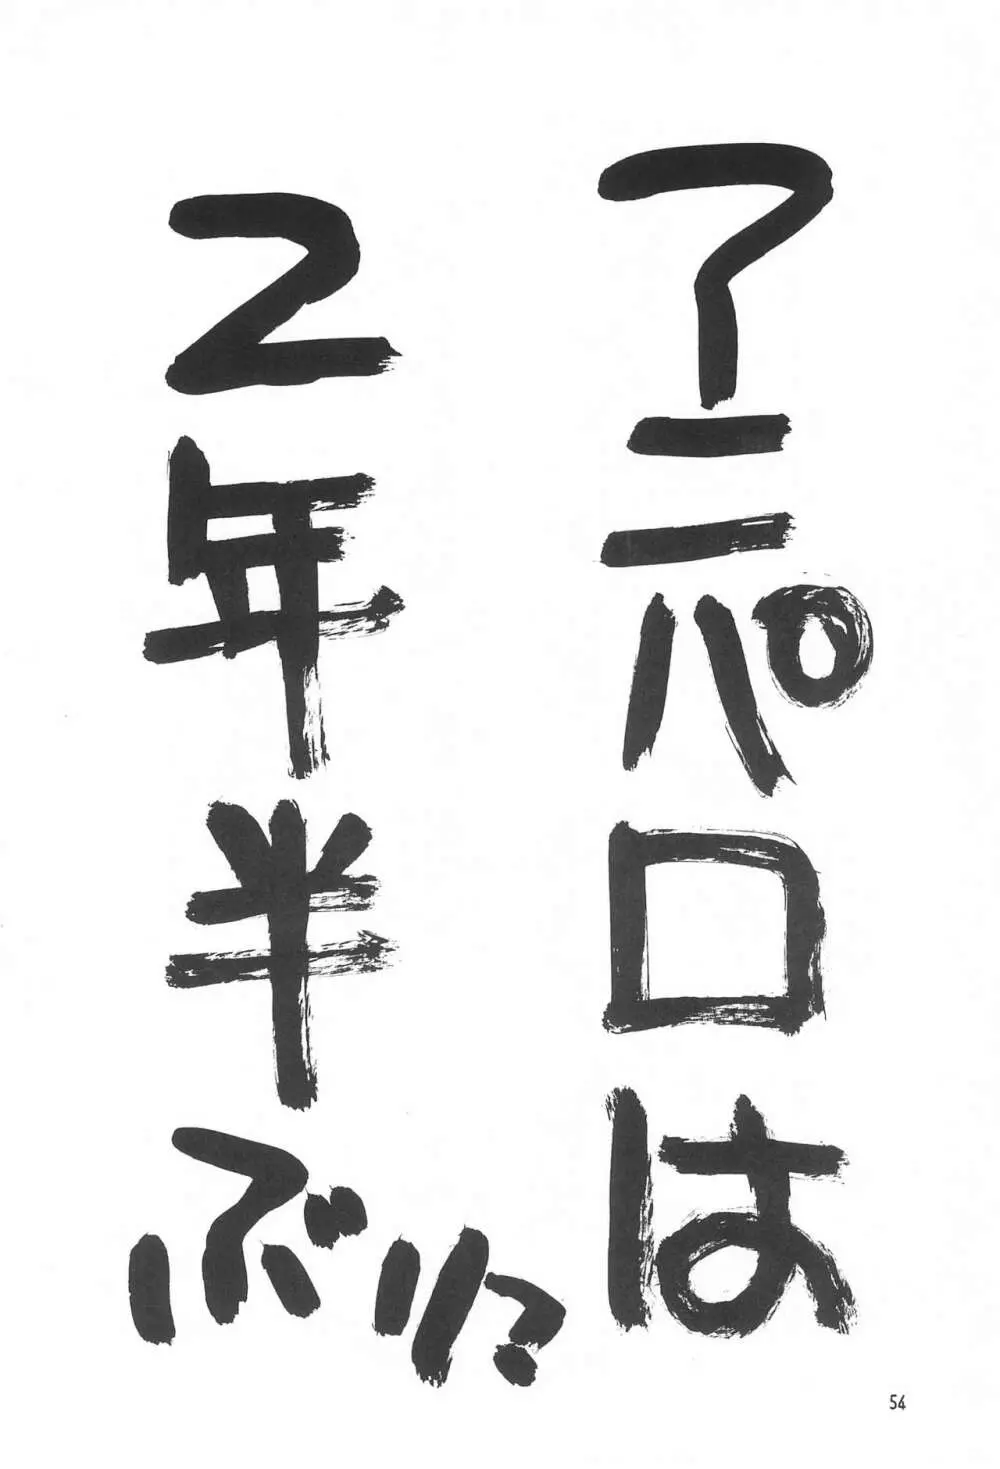 アニパロは
2年半ぶり?
54